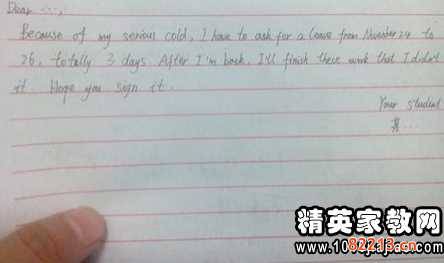 Dear ...,
Because of my serious cold, I have to ask for a leave from November 24 to
26, totally 3 days. After I'm back, I'll finish these work that I didn't
it. Hope you sign it.
Your student
精英家教网
www.1010jiajiao.com
82213.cn